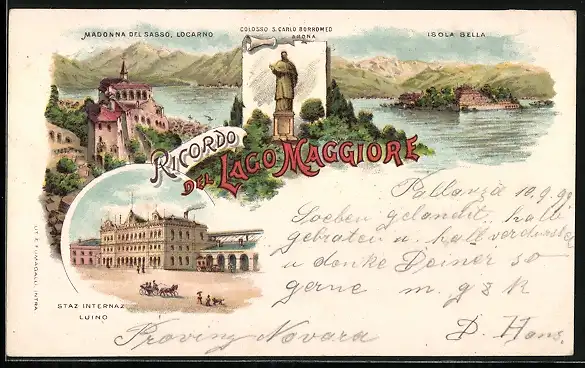 MADONNA DEL SASSO, LOCARNO
COLOSSO S. CARLO BORROMEO
ARONA
ISOLA BELLA
RICORDO
DEL LAGO MAGGIORE
Pallanza 10.9.99
Soeben gelandet, halb
gebraten u. halb verdurstet
u denke Deiner so
gerne m. g & k
D. Hans.
STAZ INTERNAZ
LUINO
LIT. E. FUMAGALLI, INTRA.
Proving Novara